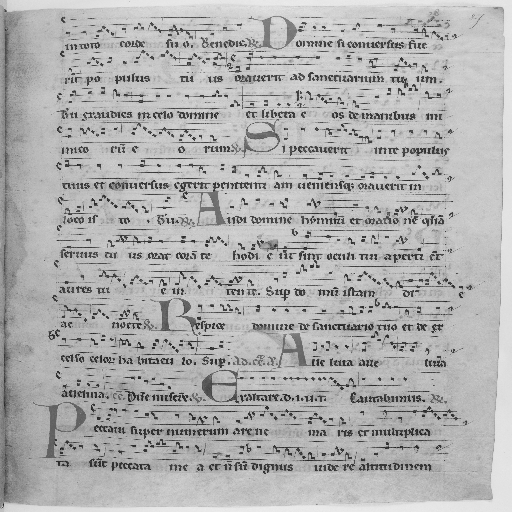 in toto corde su o. Benedic. Domine si conversus fue
rit po pulus tu us oraverit ad sanctuarium tu um.
Tu exaudies in celo domine et libera e os de manibus ini
mico rū e o rum. Si peccaverit in te populus
tuus et conversus egerit penitenti am veniensq; oraverit in
loco is to. Tu. Audi domine hymnū et oratio nē quā
servus tu us orat corā te hodi e ut sint oculi tui aperti et
aures tu e in ten te. Sup do mū istam di e
ac nocte. Respice domine de sanctuario tuo et de ex
celso celor habitacu lo. Sup. Atte lura atte lura
Dñe misere. Exaltare. d. i. v. t. Cantabimus.
Peccata super numerum are ne ma ris et multiplica
ta sūt peccata me a et nō sū dignus vide re altitudinem